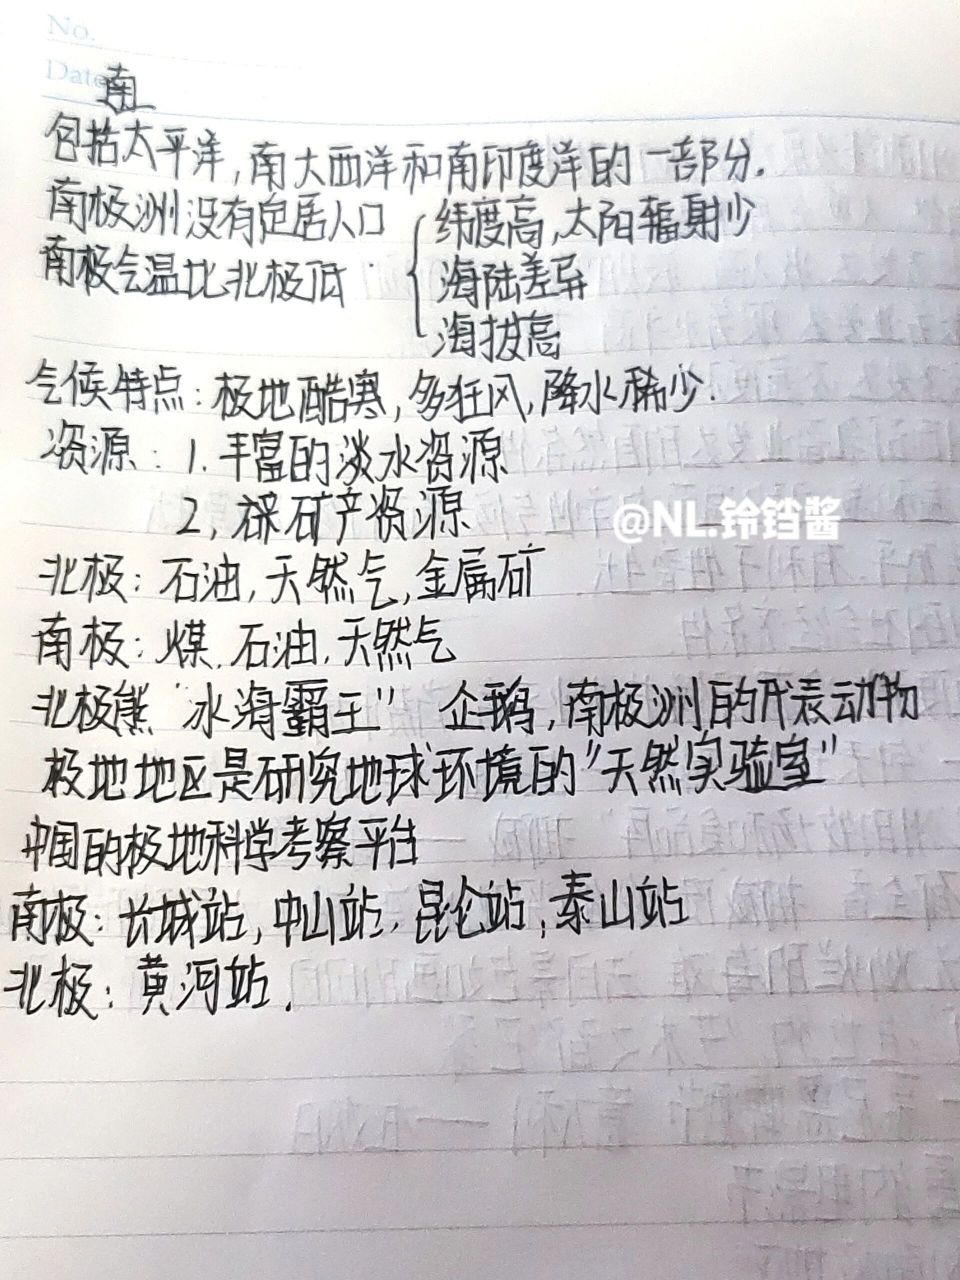 No.
Date
南
包括太平洋,南大西洋和南印度洋的一部分.
南极洲没有定居人口
南极气温比北极低
纬度高,太阳辐射少
海陆差异
海拔高
气候特点:极地酷寒,多狂风,降水稀少.
资源:1.丰富的淡水资源
2,矿产资源
@NL.铃铛酱
北极:石油,天然气,金属矿
南极:煤,石油,天然气
北极熊"冰海霸王" 企鹅,南极洲的代表动物
极地地区是研究地球环境的"天然实验室"
中国的极地科学考察平台
南极:长城站,中山站,昆仑站,泰山站
北极:黄河站.